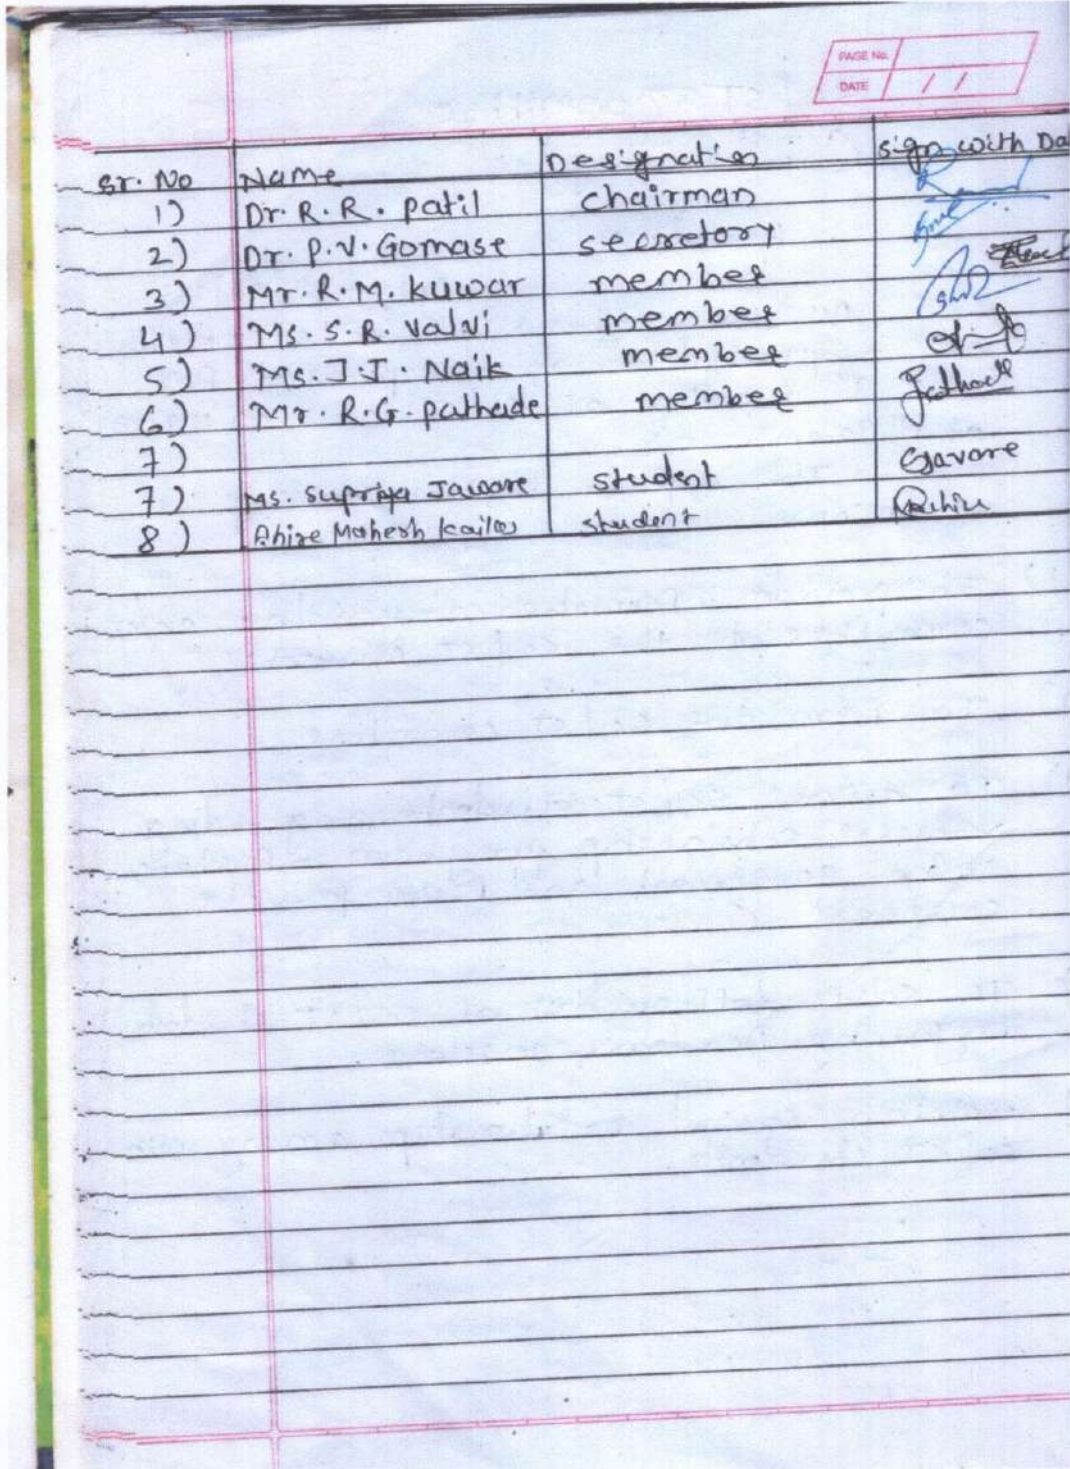 PAGE No.
DATE / /
Sr. No Name Designation sign with Da
1) Dr. R. R. patil chairman
2) Dr. P. V. Gomase secretory
3) Mr. R. M. Kuwar member
4) Ms. S. R. Valvi member
5) Ms. J. J. Naik member
6) Mr. R. G. pathade member
7)
7) Ms. Supriya Jawore student
8) Ahire Mahesh Kailas student